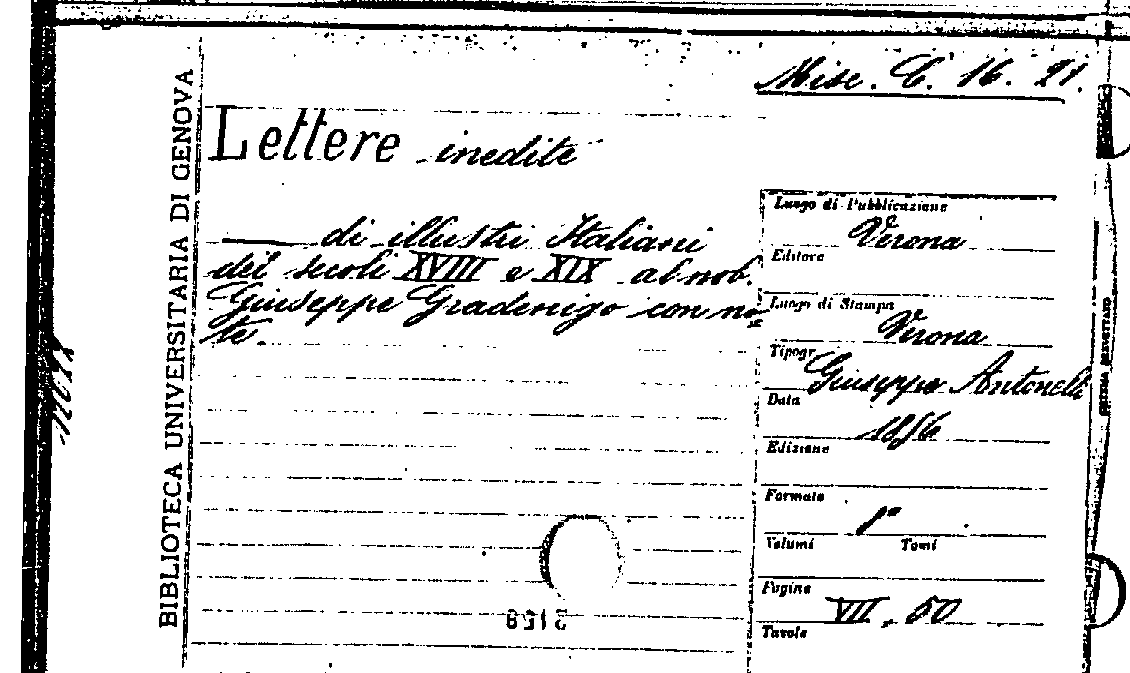 Misc. C. 16. 21.
BIBLIOTECA UNIVERSITARIA DI GENOVA
Lettere inedite
di illustri Italiani
dei secoli XVIII e XIX al nob.
Giuseppe Gradenigo con no-
te.
Luogo di Pubblicazione
Verona
Editore
Luogo di Stampa
Verona
Tipogr.
Giuseppe Antonelli
Data
1856
Edizione
Formato
8°
Volumi Tomi
Pagine
VII, 50
Tavole